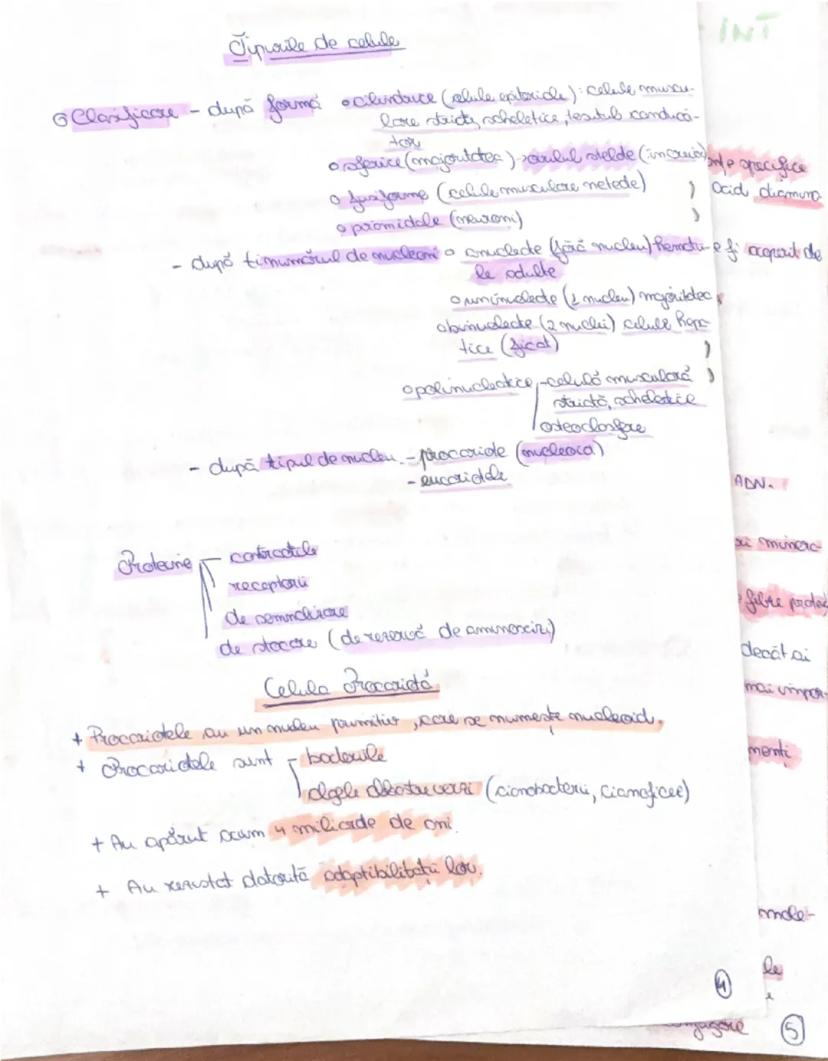 INT
Tipurile de celule
Clasificare - după formă cilindrice (celule epiteriale): celule muscu-
lare striate, scheletice, țesutul conducă-
tor
sferice (majoritatea) - ovulul
fusiforme (celule musculare netede)
piramidale (neuroni)
- după numărul de nuclei anucleate (fără nucleu)
le adulte
uninucleate (1 nucleu) majoritatea
binucleate (2 nuclei) celule hepa-
tice (ficat)
polinucleatice - celulă musculară
striată, scheletice
- după tipul de nucleu - procariote (nucleoid)
- eucariotele
Proteine contractile
receptorii
de semnalizare
de stocare (de rezervă de aminoacizi)
Celula Procariotă
+ Procariotele au un nucleu primitiv, care se numește nucleoid.
+ Procariotele sunt bacteriile
algele albastre verzi (cianobacterii, cianoficee)
+ Au apărut acum 4 miliarde de ani.
+ Au rezistat datorită adaptibilității lor.
4
specifice
acid
acoperit de
ADN.
decât ai
mai impor-
5